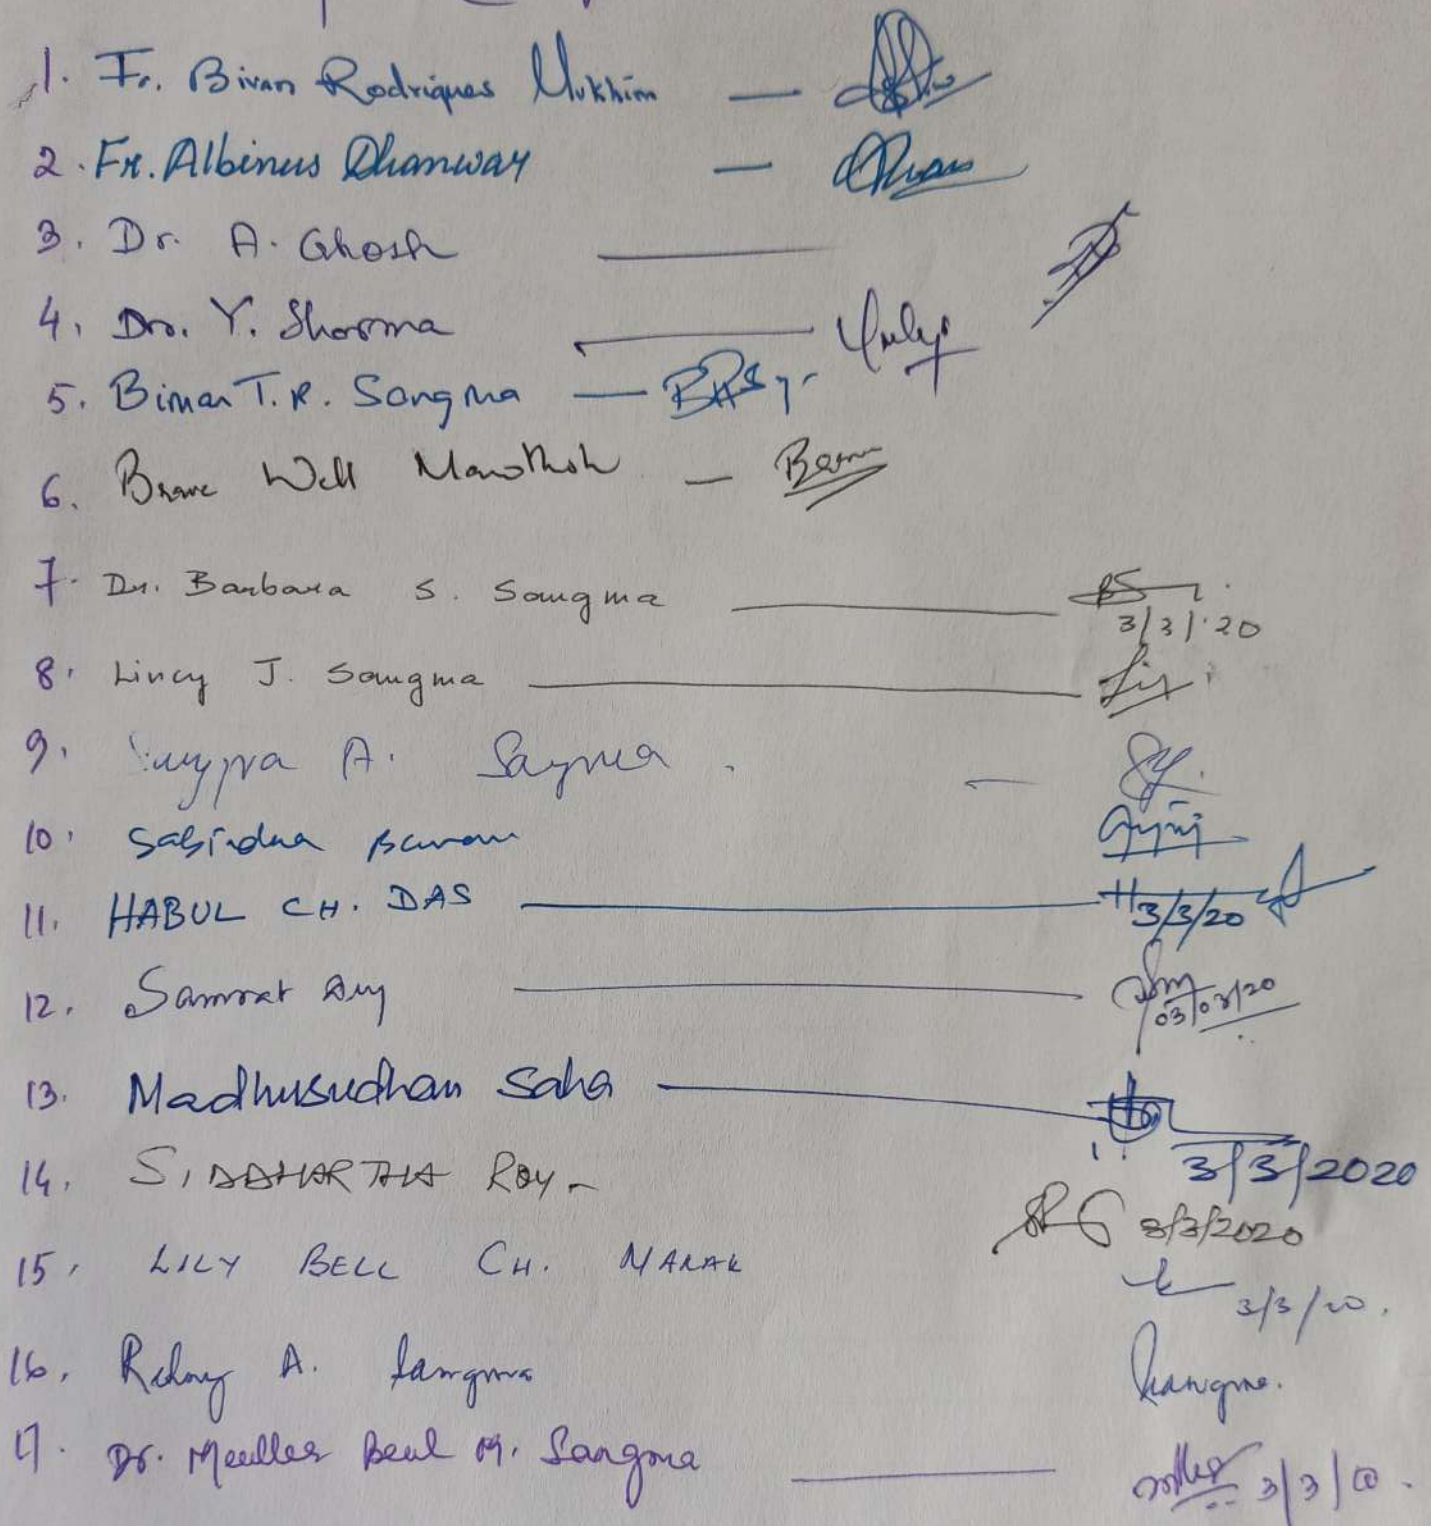 1. Fr. Bivan Rodrigues Mukhim —
2. Fr. Albinus Dhanway —
3. Dr. A. Ghosh —
4. Dr. Y. Sharma —
5. Biman T.R. Sangma —
6. Brave Well Mawthoh —
7. Dr. Barbara S. Sangma — 3/3/20
8. Lincy J. Sangma —
9. A. Sangma. —
10. Sabindra Barman
11. HABUL CH. DAS — 3/3/20
12. Samrat Dey — 03/03/20
13. Madhusudhan Saha — 3/3/2020
14. SIDDHARTHA ROY - 3/3/2020
15. LILY BELL CH. MARAK 3/3/20.
16. A. Sangma
17. Dr. Meuller Beul M. Sangma — 3/3/20.